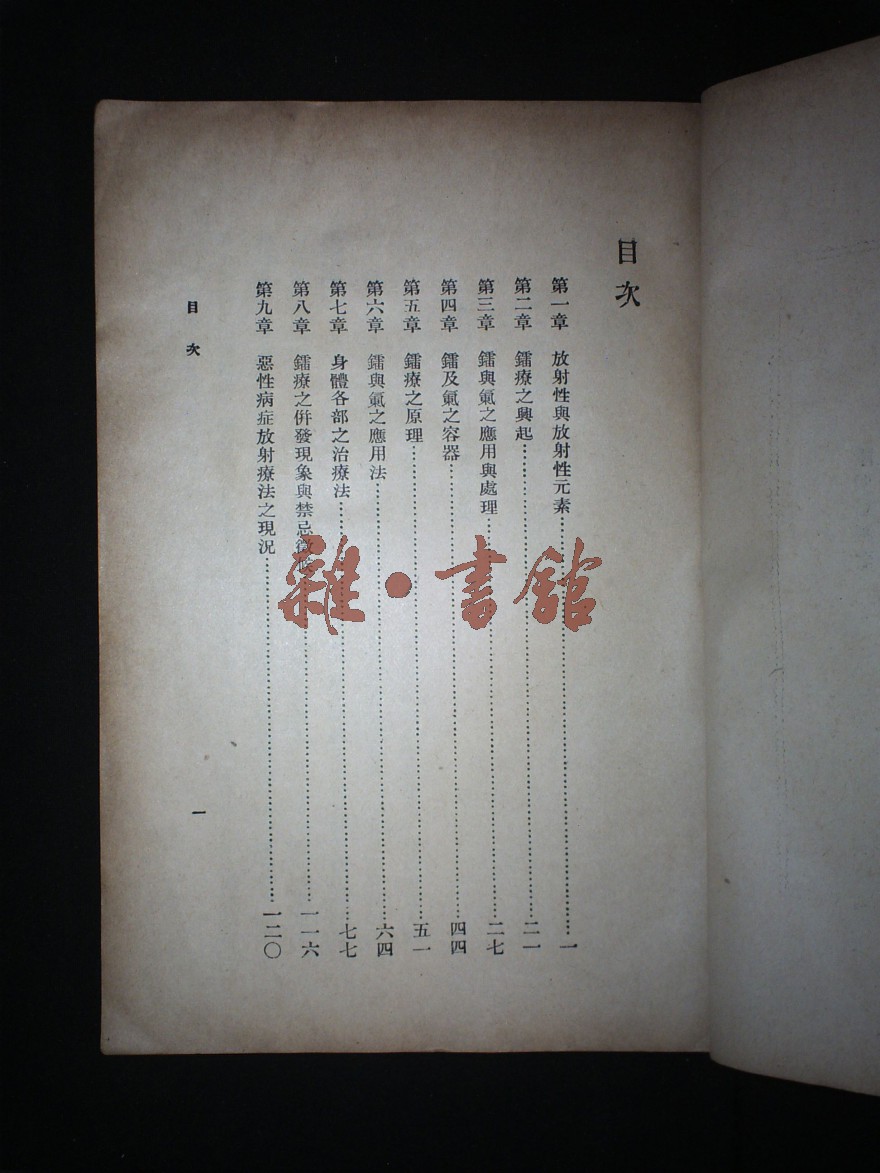 目次
第一章 放射性與放射性元素……一
第二章 鐳療之興起……二一
第三章 鐳與氣之應用與處理……二七
第四章 鐳及氣之容器……四四
第五章 鐳療之原理……五一
第六章 鐳與氣之應用法……六四
第七章 身體各部之治療法……七七
第八章 鐳療之併發現象與禁忌徵候……一一六
第九章 惡性病症放射療法之現況……一二〇
目次 一
雜·書館